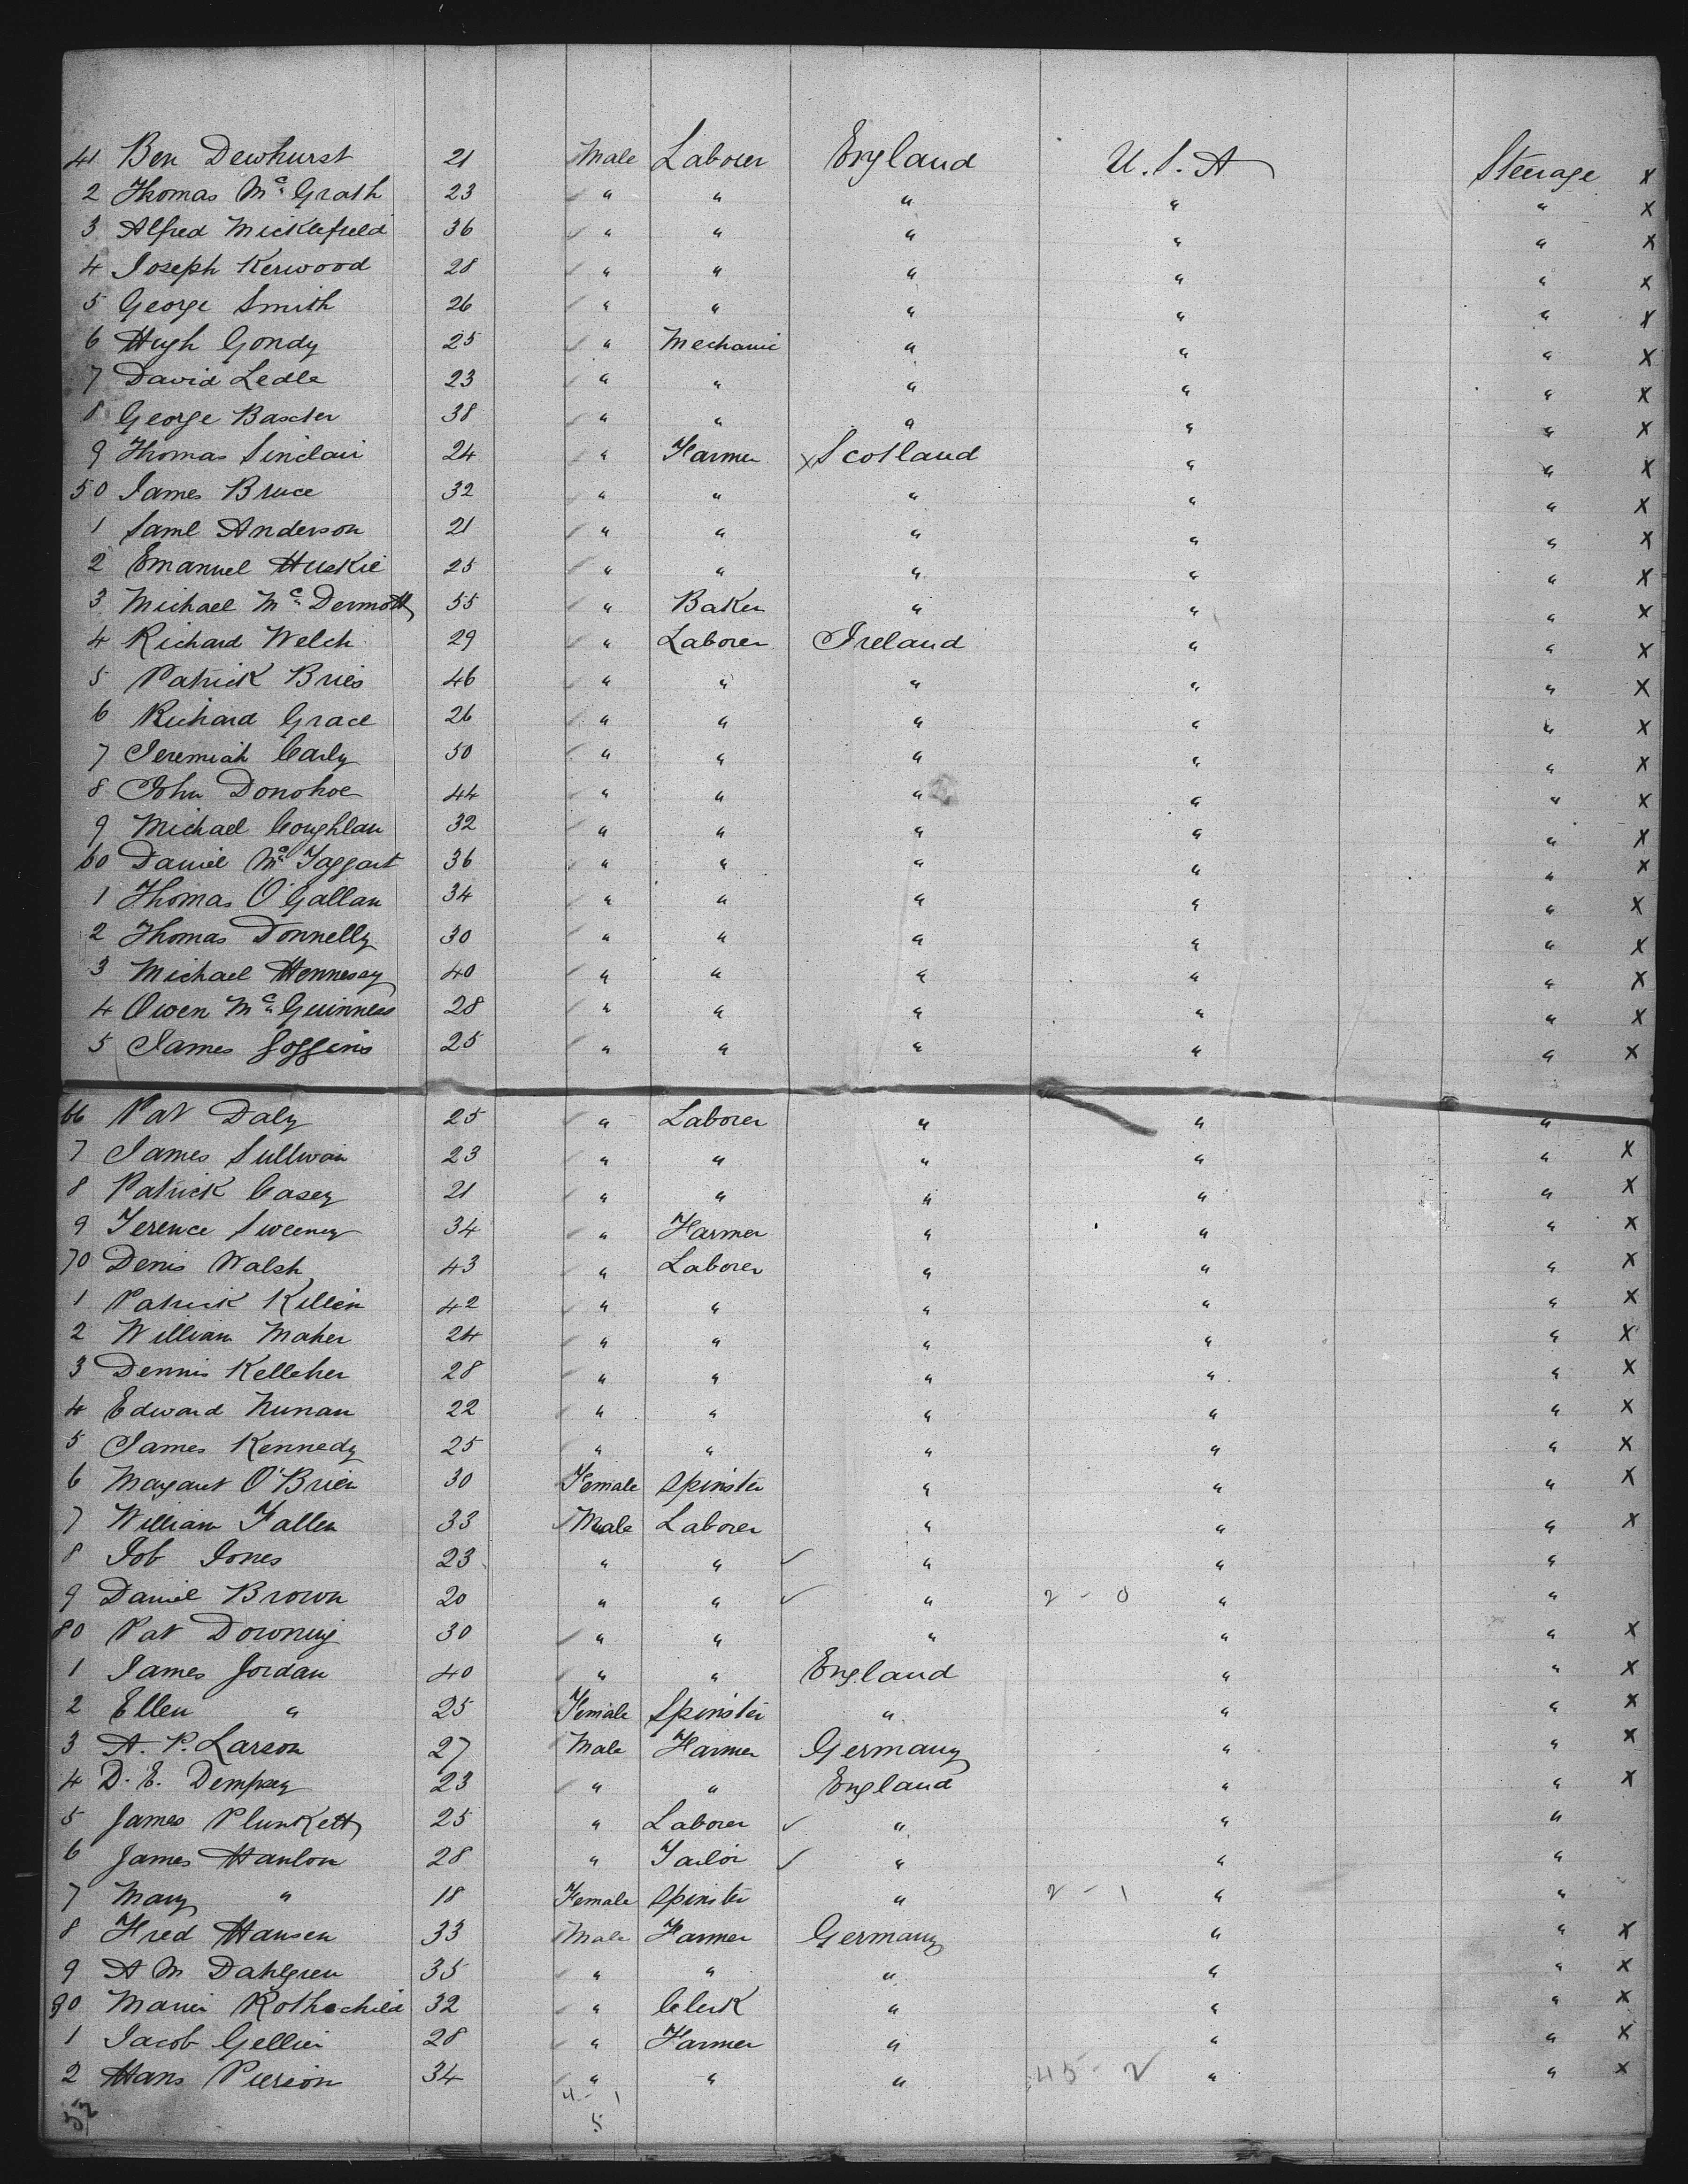 41 Ben Dewhurst 21 Male Laborer England U.S.A Steerage x
2 Thomas Mc Grath 23 " " " " " x
3 Alfred Micklefield 36 " " " " " x
4 Joseph Kerwood 28 " " " " " x
5 George Smith 26 " " " " " x
6 Hugh Gondy 25 " Mechanic " " " x
7 David Ledle 23 " " " " " x
8 George Baxter 38 " " " " " x
9 Thomas Sinclair 24 " Farmer x Scotland " " x
50 James Bruce 32 " " " " " x
1 Saml Anderson 21 " " " " " x
2 Emanuel Huskie 25 " " " " " x
3 Michael Mc Dermott 55 " Baker " " " x
4 Richard Welch 29 " Laborer Ireland " " x
5 Patrick Bries 46 " " " " " x
6 Richard Grace 26 " " " " " x
7 Jeremiah Carly 50 " " " " " x
8 John Donohoe 44 " " " " " x
9 Michael Coughlan 32 " " " " " x
60 Daniel Mc Taggart 36 " " " " " x
1 Thomas O'Gallan 34 " " " " " x
2 Thomas Donnelly 30 " " " " " x
3 Michael Hennesey 40 " " " " " x
4 Owen Mc Guinness 28 " " " " " x
5 James Goggins 25 " " " " " x
66 Pat Daly 25 " Laborer " " "
7 James Sullivan 23 " " " " " x
8 Patrick Casey 21 " " " " " x
9 Terence Sweeney 34 " Farmer " " " x
70 Denis Walsh 43 " Laborer " " " x
1 Patrick Killin 42 " " " " " x
2 William Maher 24 " " " " " x
3 Dennis Kelleher 28 " " " " " x
4 Edward Nunan 22 " " " " " x
5 James Kennedy 25 " " " " " x
6 Margaret O'Brien 30 Female Spinster " " " x
7 William Fallen 33 Male Laborer " " " x
8 Job Jones 23 " " ✓ " " "
9 Daniel Brown 20 " " ✓ " 2 - 0 " "
80 Pat Downing 30 " " " " " x
1 James Jordan 40 " " England " " x
2 Ellen " 25 Female Spinster " " " x
3 A. P. Larson 27 Male Farmer Germany " " x
4 D. E. Dempsey 23 " " England " " x
5 James Plunkett 25 " Laborer ✓ " " "
6 James Hanlon 28 " Tailor ✓ " " "
7 Mary " 18 Female Spinster " 2 - 1 " "
8 Fred Hansen 33 Male Farmer Germany " " x
9 A M Dahlgren 35 " " " " " x
90 Rothschild 32 " Clerk " " " x
1 Jacob Gellier 28 " Farmer " " " x
2 Hans Pierson 34 " " " 45 - 2 " " x
52 4 - 1
5